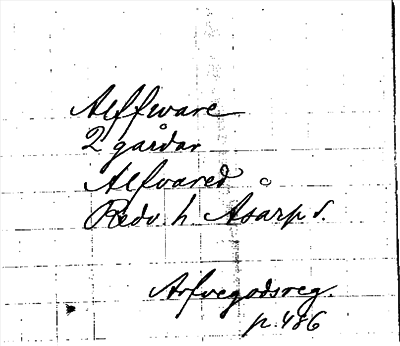 Alffware
2 gårdar
Alfvared
Redv. h. Åsarp s.
Arfvegodsreg.
p. 486